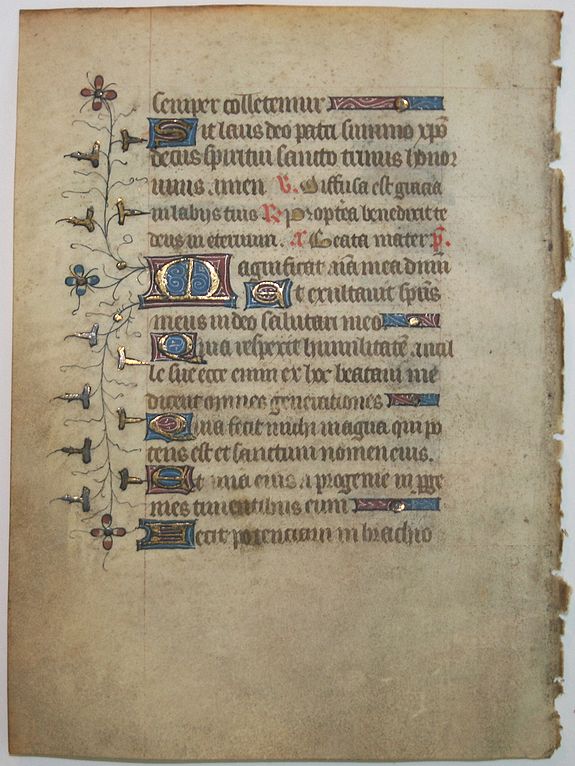 semper colletemur
Sit laus deo patri summo xpō
decus spiritui sancto trinus honor
unus. amen. V. Diffusa est gracia
in labijs tuis R propt̄ea benedixit te
deus in eternum. a Beata mater. p̄.
Magnificat aīa mea dnm̄
Et exultavit spūs
meus in deo salutari meo
Quia respexit humilitatē ancil
le sue ecce enim ex hoc beatam me
dicent omnes generationes
Quia fecit michi magna qui po
tens est et sanctum nomen eius.
Et mīa eius a progenie in p̄ge
nies timentibus eum
Fecit potenciam in brachio